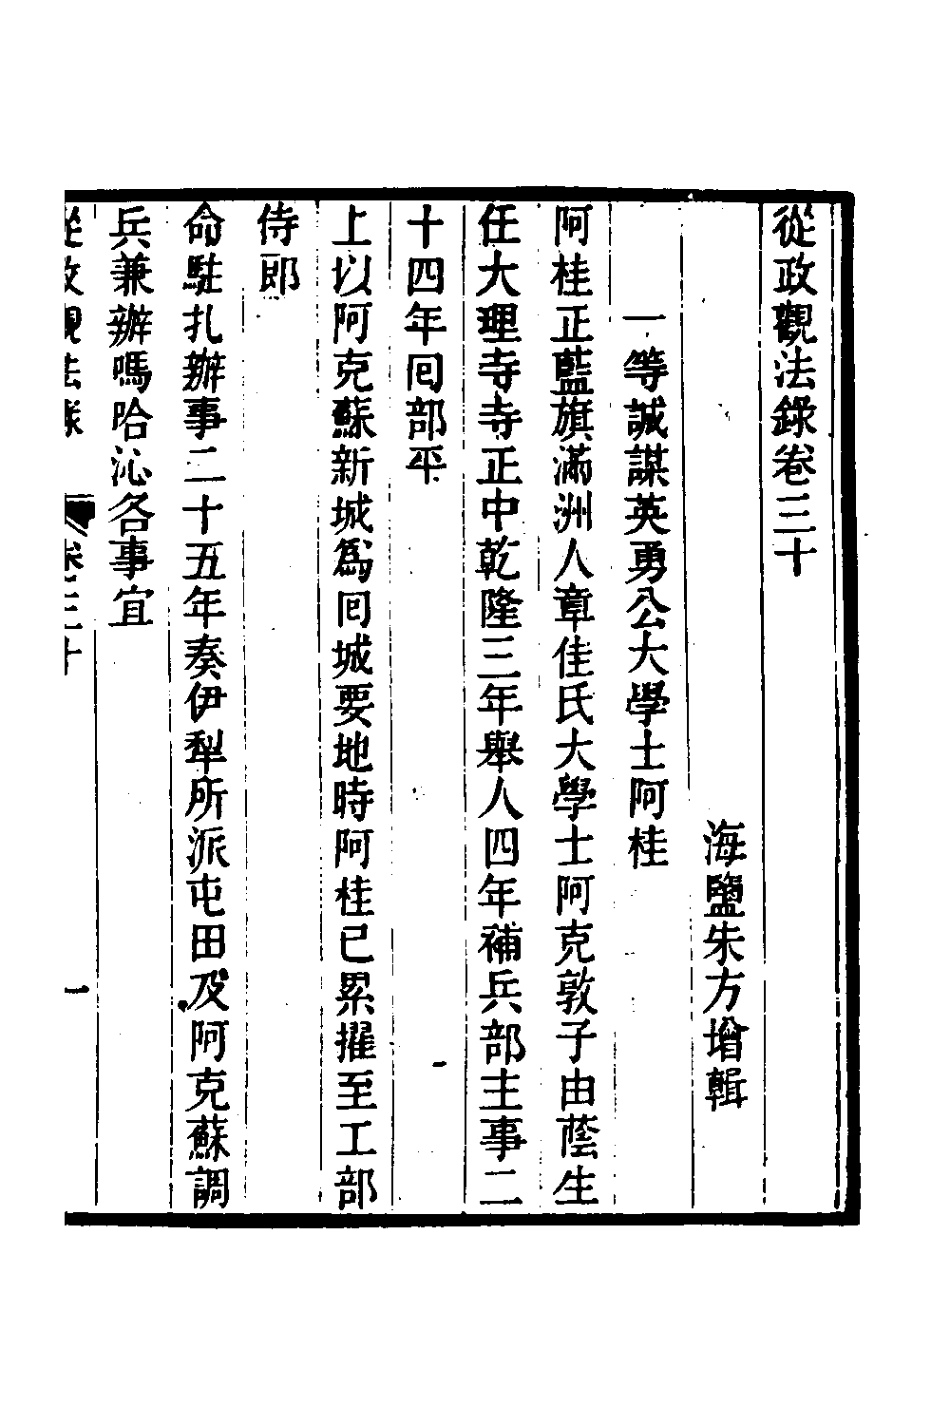 從政觀法錄卷三十
海鹽朱方增輯
一等誠謀英勇公大學士阿桂
阿桂正藍旗滿洲人章佳氏大學士阿克敦子由蔭生
任大理寺寺正中乾隆三年舉人四年補兵部主事二
十四年囘部平
上以阿克蘇新城爲囘城要地時阿桂已累擢至工部
侍郎
命駐扎辦事二十五年奏伊犁所派屯田及阿克蘇調
兵兼辦嗎哈沁各事宜
從政觀法錄 卷三十 一